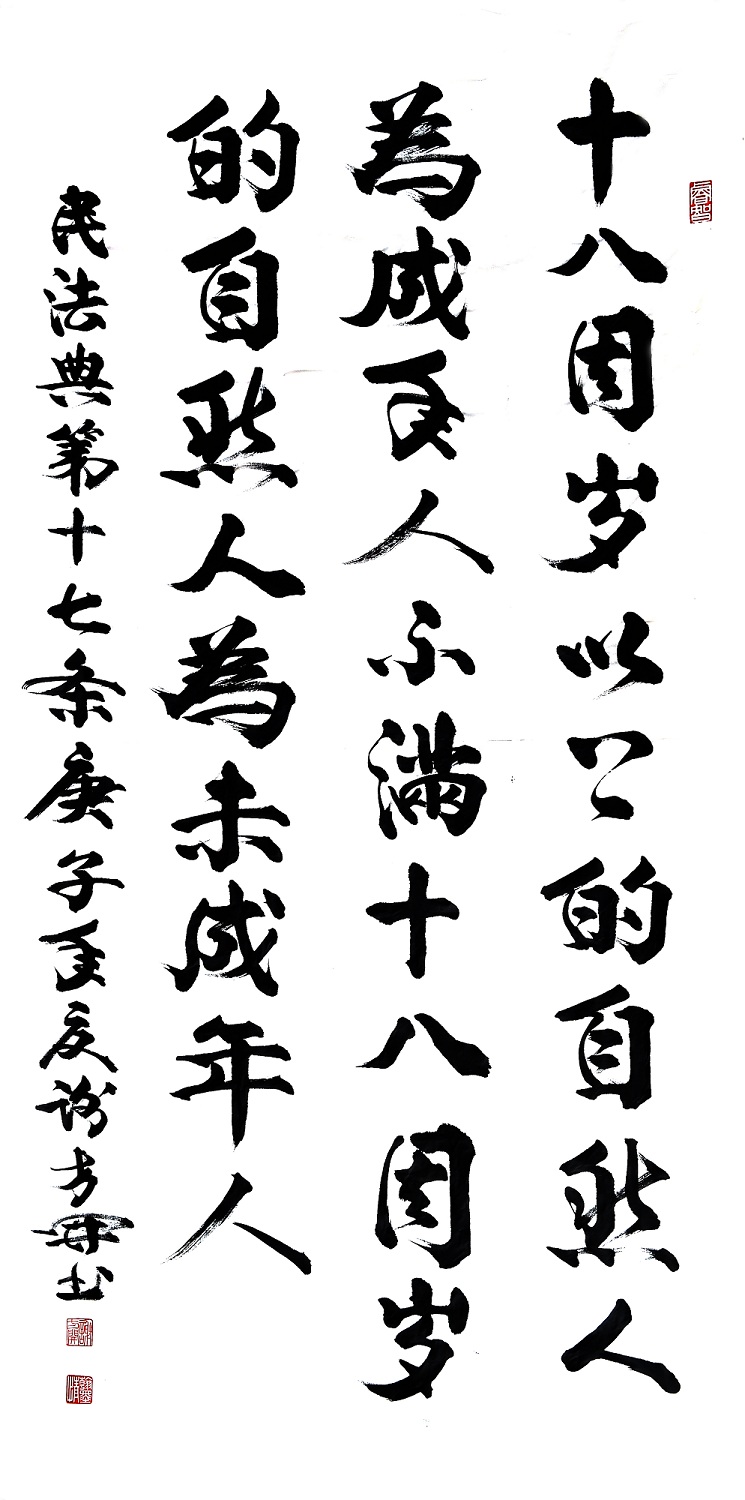 睿智
十八周岁以上的自然人
為成年人不满十八周岁
的自然人為未成年人
民法典第十七条庚子年夏谢方书